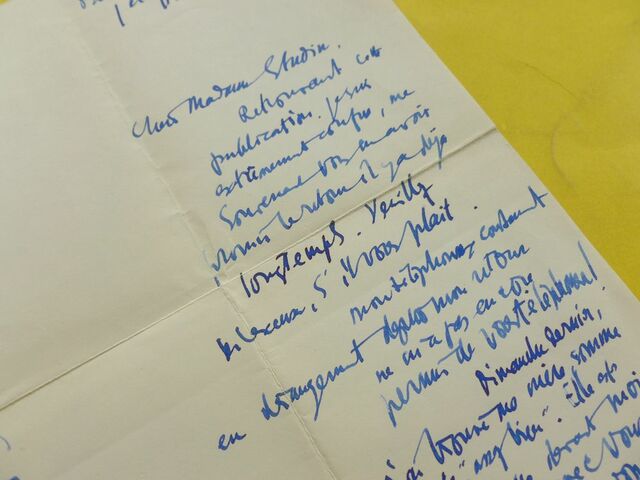 Chère Madame Studin.
Retrouvant cette
publication. Je suis
extrêmement confus, me
souvenant vous en avoir
promis le retour il y a déjà
longtemps. Veuillez
m'excuser, s'il vous plaît.
Mon téléphone, constamment
en dérangement depuis mon retour
ne m'a pas encore
permis de vous téléphoner!
Dimanche dernier,
j'ai trouvé ma mère comme
"assez bien". Elle
devant moi